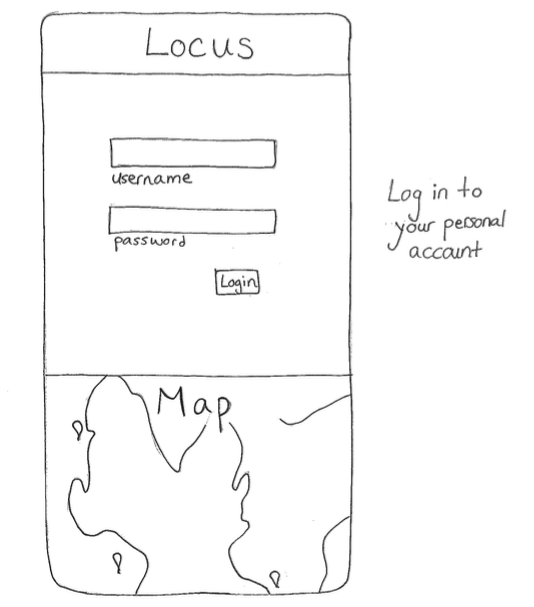 Locus
username
password
Login
Log in to
your personal
account
Map